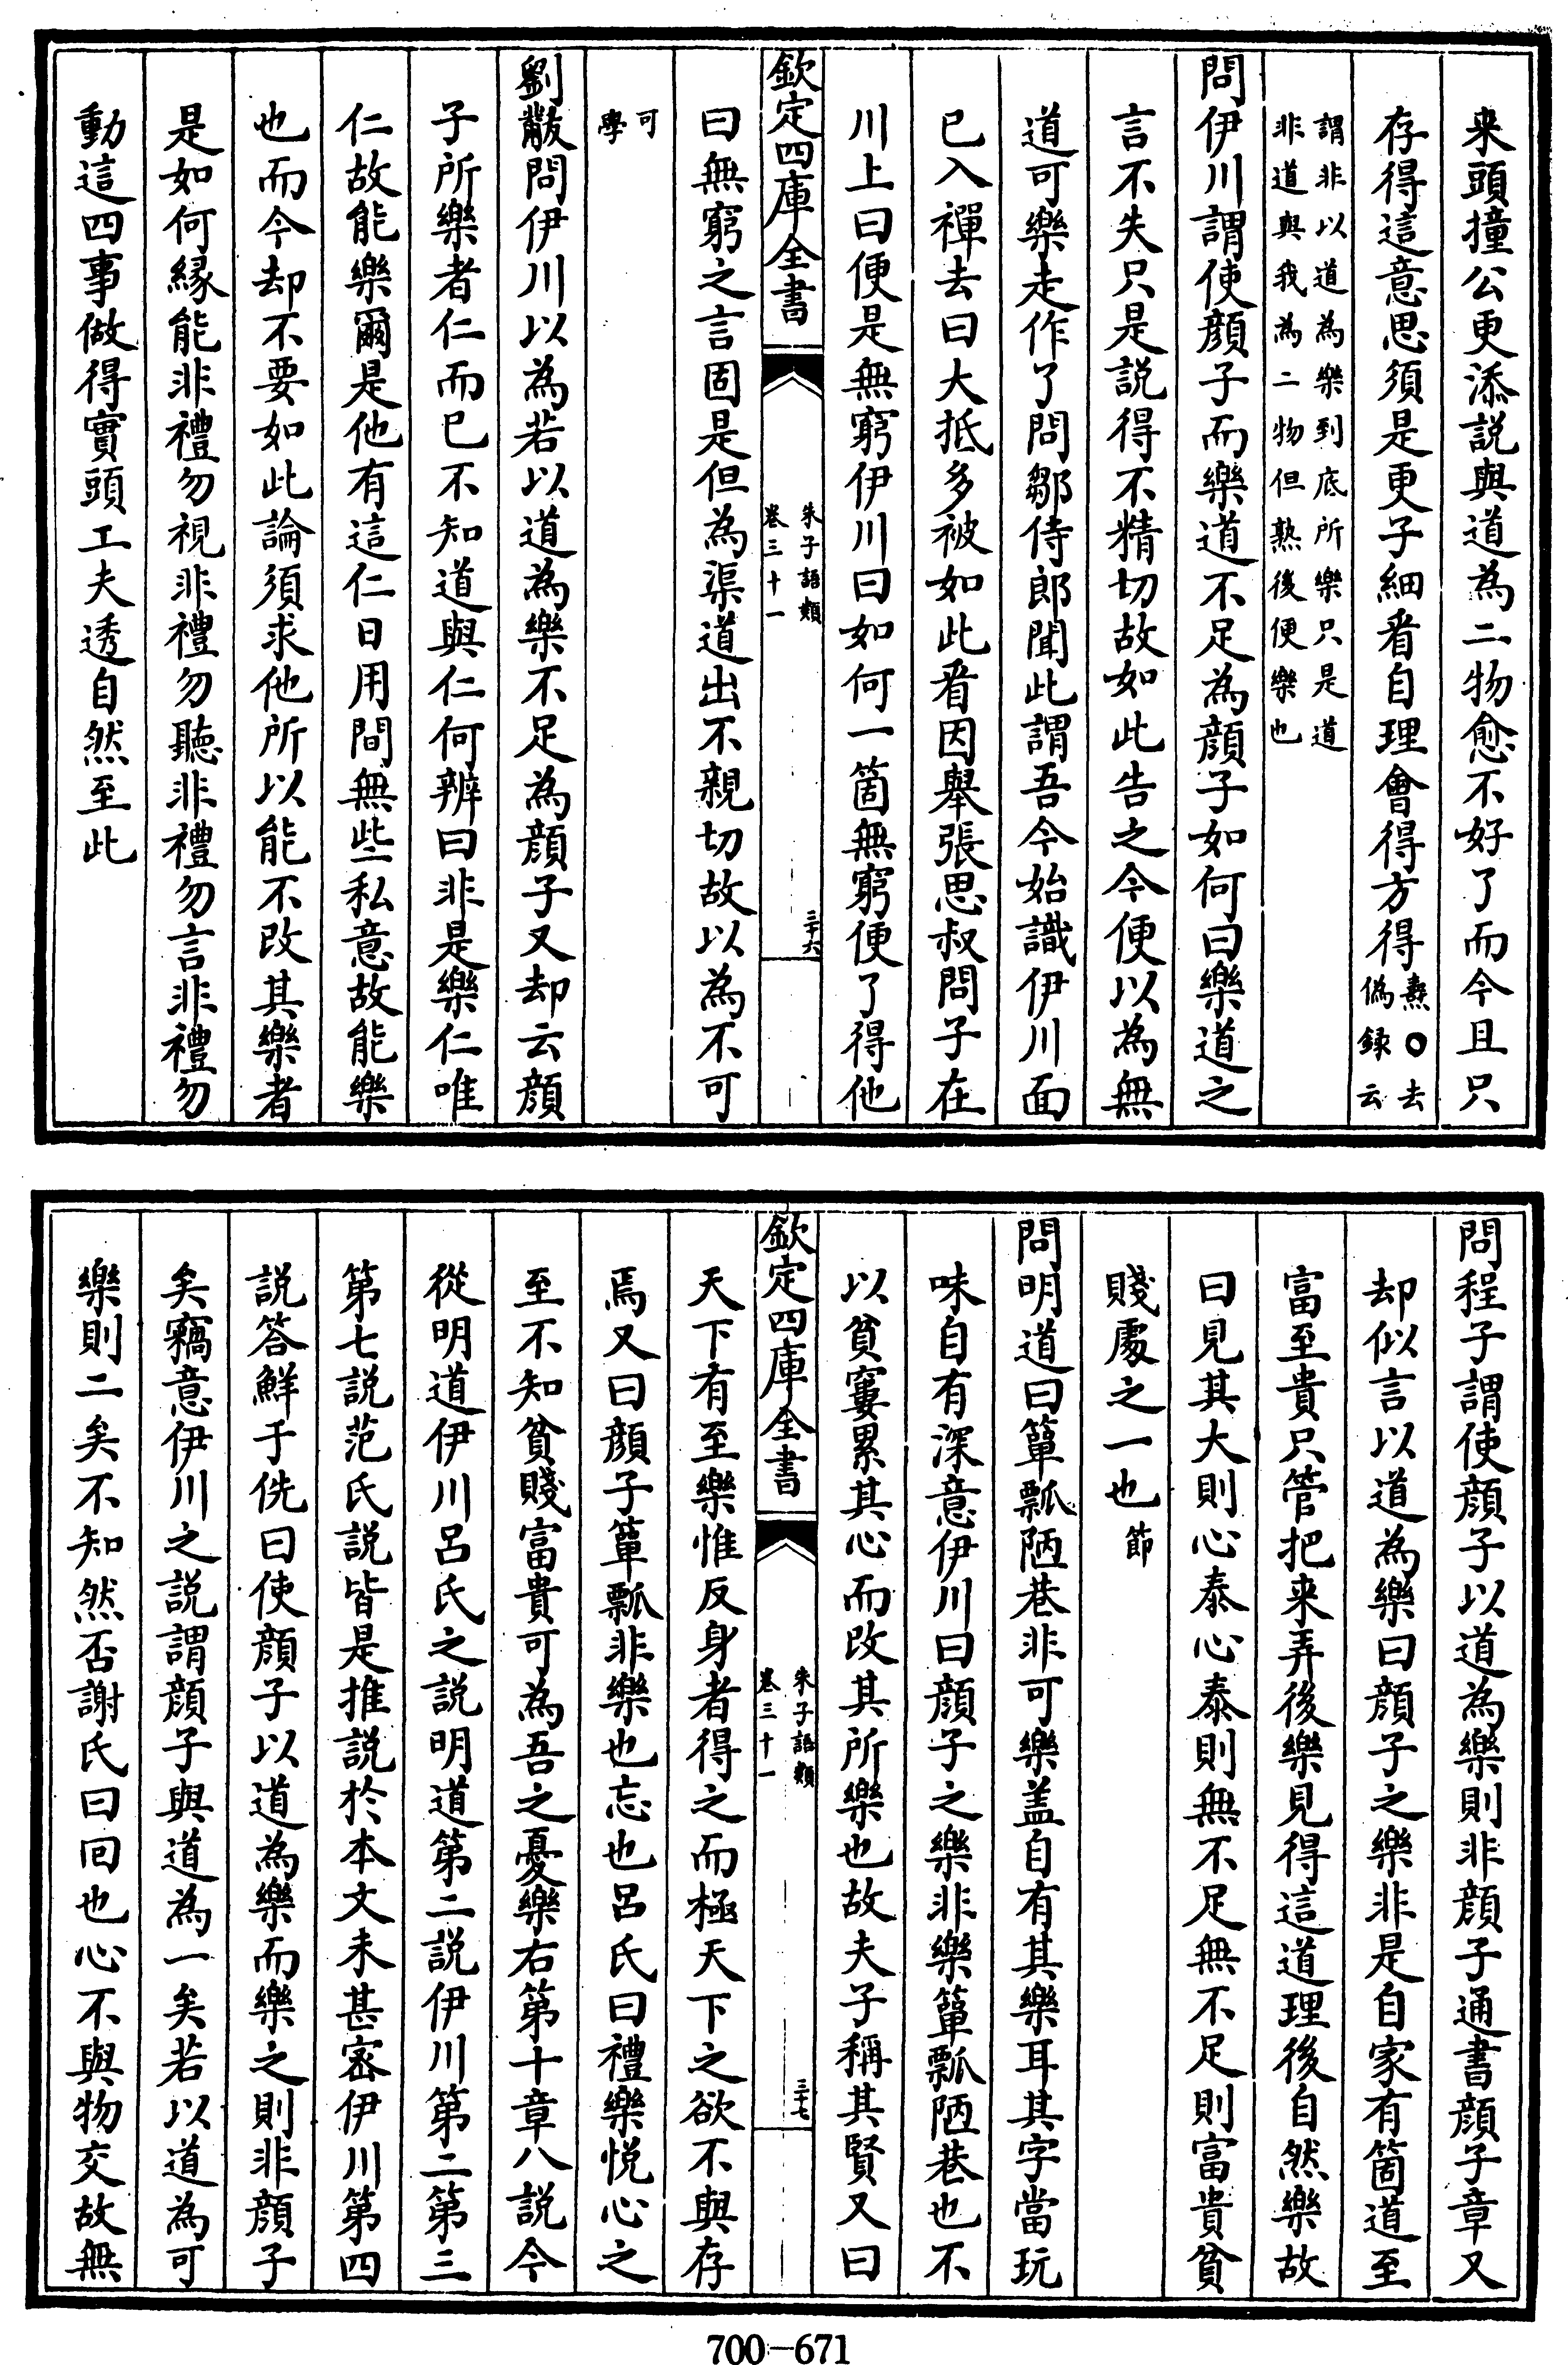 来頭撞公更添説與道為二物愈不好了而今且只
存得這意思須是更子細看自理會得方得燾○去
偽録云
謂非以道為樂到底所樂只是道
非道與我為二物但熟後便樂也
問伊川謂使顔子而樂道不足為顔子如何曰樂道之
言不失只是説得不精切故如此告之今便以為無
道可樂走作了問鄒侍郎聞此謂吾今始識伊川面
已入禪去曰大抵多被如此看因舉張思叔問子在
川上曰便是無窮伊川曰如何一箇無窮便了得他
欽定四庫全書
朱子語類
卷三十一
三十六
曰無窮之言固是但為渠道出不親切故以為不可
可
學
劉黻問伊川以為若以道為樂不足為顔子又却云顔
子所樂者仁而已不知道與仁何辨曰非是樂仁唯
仁故能樂爾是他有這仁日用間無些私意故能樂
也而今却不要如此論須求他所以能不改其樂者
是如何縁能非禮勿視非禮勿聽非禮勿言非禮勿
動這四事做得實頭工夫透自然至此
問程子謂使顔子以道為樂則非顔子通書顔子章又
却似言以道為樂曰顔子之樂非是自家有箇道至
富至貴只管把来弄後樂見得這道理後自然樂故
曰見其大則心泰心泰則無不足無不足則富貴貧
賤處之一也節
問明道曰簞瓢陋巷非可樂盖自有其樂耳其字當玩
味自有深意伊川曰顔子之樂非樂簞瓢陋巷也不
以貧窶累其心而改其所樂也故夫子稱其賢又曰
欽定四庫全書
朱子語類
卷三十一
三十七
天下有至樂惟反身者得之而極天下之欲不與存
焉又曰顔子簞瓢非樂也忘也呂氏曰禮樂悦心之
至不知貧賤富貴可為吾之憂樂右第十章八説今
從明道伊川呂氏之説明道第二説伊川第二第三
第七説范氏説皆是推説於本文未甚密伊川第四
説答鮮于侁曰使顔子以道為樂而樂之則非顔子
矣竊意伊川之説謂顔子與道為一矣若以道為可
樂則二矣不知然否謝氏曰回也心不與物交故無
700-671